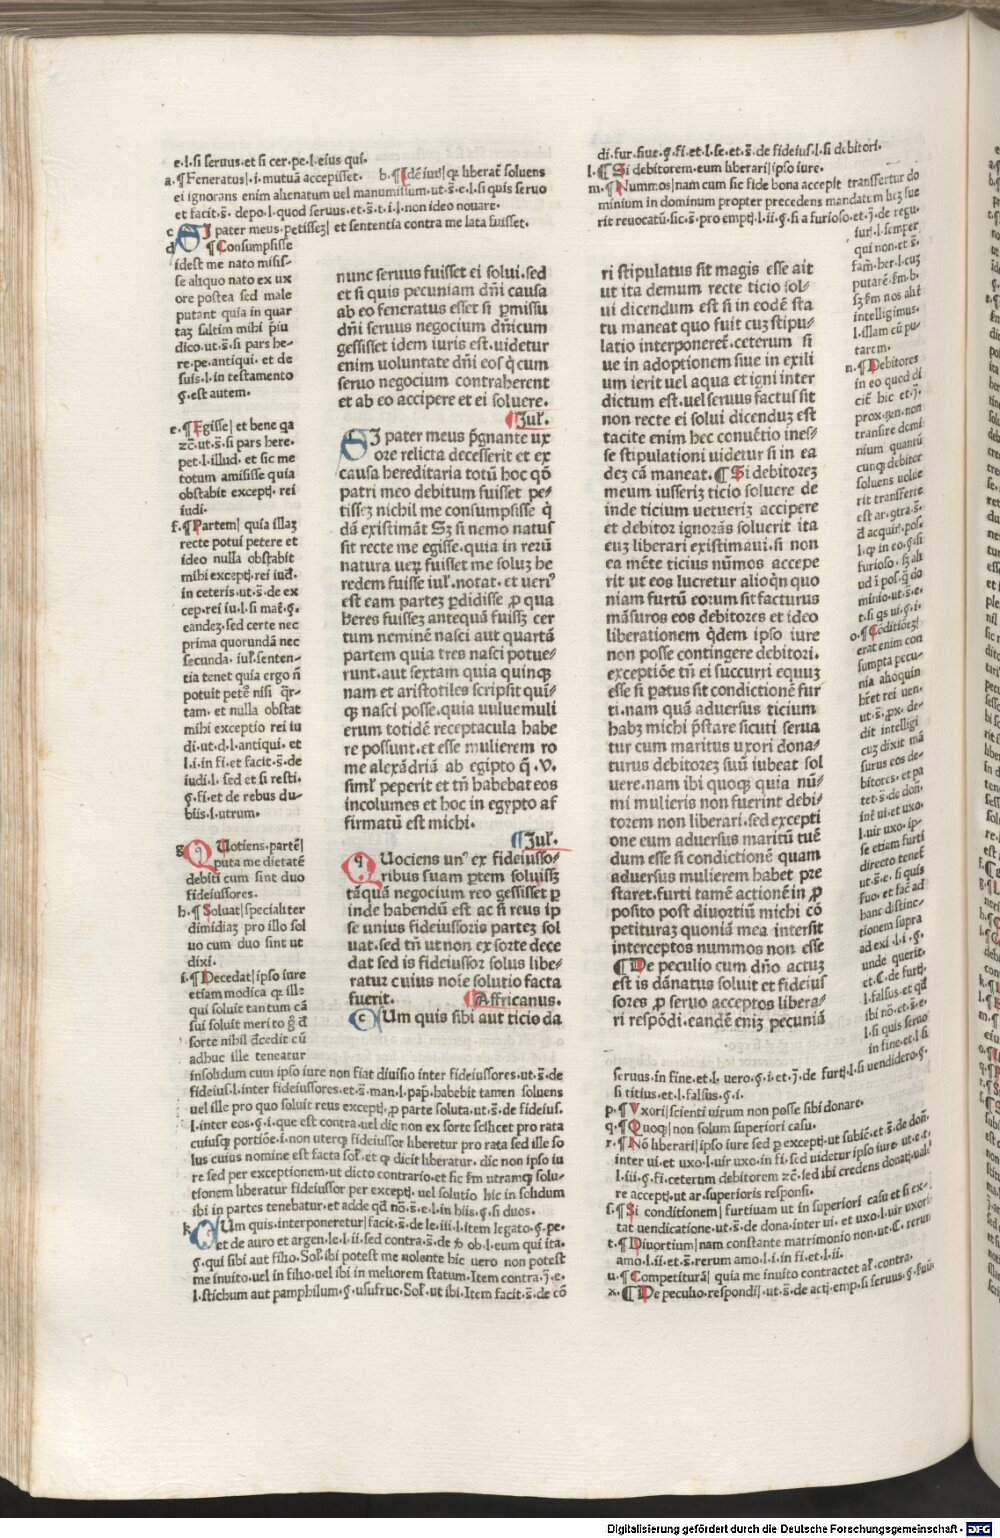 e.l.si seruus.et si cer.pe.l.eius qui.
a.¶Feneratus|.i.mutuã accepisset. b.¶Idẽ iur̃| qꝛ liberat̃ soluens
ei ignorans enim alienatum uel manumissum.ut.s̃.e.l.si quis seruo
et facit.s̃. depo.l.quod seruus.et.s̃.t.i.l.non ideo nouare.
c SI pater meus.petissez| et sententia contra me lata fuisset.
d ¶Consumpsisse
idest me nato misis-
se aliquo nato ex ux
ore postea sed male
putant quia in quar
taʒ saltim mihi p̃iu
dico.ut.s̃.si pars he-
re.pe.antiqui. et de
suis.l.in testamento
§.est autem.
e.¶Egisse| et bene qa
zc̃.ut.s̃.si pars here.
pet.l.illud. et sic me
totum amisisse quia
obstabit exceptị. rei
iudi.
f.¶Partem| quia illaʒ
recte potui petere et
ideo nulla obstabit
mihi exceptị.rei iud̃.
in ceteris.ut.s̃.de ex
cep.rei iu.l.si mat̃.§.
eandeʒ.sed certe nec
prima quorundã nec
secunda. iul̃.senten-
tia tenet quia ergo ñ
potuit pet̃e nisi q̃r-
tam. et nulla obstat
mihi exceptio rei iu
di.ut.d.l.antiqui. et
l.i.in fi.et facit.s̃.de
iudi.l. sed et si resti.
§.fi.et de rebus du-
biis.l.utrum.
g QUotiens.partẽ|
puta me dietatẽ
debiti cum sint duo
fideiussores.
h.¶Soluat|specialiter
dimidiaʒ pro illo sol
uo cum duo sint ut
dixi.
i.¶Decedat|ipso iure
etiam modica qꝛ ille
qui soluit tantum cã
sui soluit merito g̃ d̃
sorte nihil d̃cedit cũ
adhuc ille teneatur
insolidum cum ipso iure non fiat diuisio inter fideiussores.ut.s̃.de
fideius.l.inter fideiussores.et.s̃.man.l.pap̃.habebit tamen soluens
uel ille pro quo soluit reus exceptị.ꝓ parte soluta.ut.s̃.de fideius.
l.inter eos.§.i.que est contra.uel dic non ex sorte scilicet pro rata
cuiusqʒ portiõe.i.non uterqʒ fideiussor liberetur pro rata sed ille so
lus cuius nomine est facta sol̃.et qꝛ dicit liberatur. dic non ipso iu
re sed per exceptionem.ut dicto contrario.et sic fm utramqʒ solu-
tionem liberatur fideiussor per exceptị. uel solutio hic in solidum
ibi in partes tenebatur.et adde qd̃ nõ.s̃.e.l.in hiis.§.si duos.
k CUm quis.interponeretur|facit.s̃.de le.iii.l.item legato.§.pe.
et de auro et argen.le.l.ii.sed contra.s̃.de ꝟb ob.l.eum qui ita.
§.qui sibi aut filio.Sol̃.ibi potest me nolente hic uero non potest
me inuito.uel in filio.uel ibi in meliorem statum.Item contra.j̃.e.
l.stichum aut pamphilum.§.usufruc.Sol̃.ut ibi.Item facit.s̃.de cõ
nunc seruus fuisset ei solui.sed
et si quis pecuniam dñi causa
ab eo feneratus esset si ꝑmissu
dñi seruus negocium dñicum
gessisset idem iuris est.uidetur
enim uoluntate dñi eos q̇ cum
seruo negocium contraherent
et ab eo accipere et ei soluere.
¶Jul̃.
SI pater meus p̃gnante ux
ore relicta decesserit et ex
causa hereditaria totũ hoc qõ
patri meo debitum fuisset pe-
tisseʒ nichil me consumpsisse q̇
dã existimãt Sʒ si nemo natus
sit recte me egisse.quia in rerũ
natura ueꝝ fuisset me soluʒ he
redem fuisse iul̃.notat.et ueri9
est eam parteʒ ꝑdidisse ꝓ qua
heres fuissez antequã fuissʒ cer
tum neminẽ nasci aut quartã
partem quia tres nasci potue-
runt.aut sextam quia quinqʒ
nam et aristotiles scripsit qui-
qʒ nasci posse.quia uulue muli
erum totidẽ receptacula habe
re possunt.et esse mulierem ro
me alexãdriã ab egipto q̃.v.
simľ peperit et tñ habebat eos
incolumes et hoc in egypto af
firmatũ est michi.
¶Jul̃.
QUociens un9 ex fideiusso-
ribus suam ꝑtem soluissʒ
tãquã negocium reo gessisset ꝑ
inde habendũ est ac si reus ip
se unius fideiussoris parteʒ sol
uat.sed tñ ut non ex sorte dece
dat sed is fideiussor solus libe-
ratur cuius noie solutio facta
fuerit. ¶Affricanus.
CUm quis sibi aut ticio da
di.fur.siue.§.fi.et.l.se.et.s̃.de fideius.l.si debitori.
l.¶Si debitorem.eum liberari|ipso iure.
m.¶Nummos|nam cum sic fide bona accepit transfertur do
minium in dominum propter precedens mandatum licʒ sue
rit reuocatũ.sic.s̃.pro emptị.l.ii.§.si a furioso.et.j̃.de regu.
iurị.l.semper
qui non.et.s̃.
fam̃.her.l.cuʒ
putarẽ.fm.b.
sʒ fm nos aliť
intelligimus.
l.illam cũ pu-
tarem.
n.¶Debitores
in eo quod di
cit̃ hic et.j̃.
prox.gen.non
transire domi
nium quantũ
cunqʒ debitor
soluens uolue
rit transferre
est ar.9tra.s̃.
d̃ acquirị.pos.
l.qꝛ in eo.§.si
furioso. sʒ ali
ud ĩ pos.q̃ do
minio.ut.s̃.e.
t.si qs ui.§.i.
o.¶Cõditiõez|
erat enim con
sumpta pecu-
nia alioquin
hr̃et rei uen.
ut.s̃.ꝓx. de-
dit intelligi
cuʒ dixit mã
surus eos de-
bitores.et pa
tet.s̃.de don̄.
int̃ ui.et uxo.
l.uir uxo.ip-
se etiam furti
directo tenet̃
ut.s̃.e.si quis
fuo.et fac̃ ad
hanc distinc-
tionem supra
ad exi.l.i.§.
unde querit.
et.C.de furtị.
l.falsus.et qd̃
ibi nõ.et.s̃.e.
l.si quis seruo
in fine.et l si
seruus.in fine.et.l. uero.§.i.et.j̃.de furtị.l.si uendidero.§.
si titius.et.l.falsus.§.i.
p.¶Vxori|scienti uirum non posse sibi donare.
q.¶Quoqʒ|non solum superiori casu.
r.¶Nõ liberari|ipso iure sed ꝑ exceptị.ut subiic̃.et.s̃.de don̄.
inter ui.et uxo.l.uir uxo.in fi.sed uidetur ipso iure.ut.e.t.
l.iii.§.fi.ceterum debitorem zc̃.sed ibi credens donatị.uale
re acceptị.ut ar.superioris responsi.
s.¶Si conditionem| furtiuam ut in superiori casu et si ex-
tat uendicatione.ut.s̃.de dona.inter ui. et uxo.l.uir uxori
t.¶Diuortium|nam constante matrimonio non.ut.C. rerum
amo.l.ii.et.s̃.rerum amo.l.i.in fi.et l.ii.
u.¶Competiturã| quia me inuito contractet ar̃.l.contra.
x.¶De peculio.respondi|.ut.s̃.de actị.emp.si seruus.§.fuiũ
ri stipulatus sit magis esse ait
ut ita demum recte ticio sol-
ui dicendum est si in eodẽ sta
tu maneat quo fuit cuʒ stipu-
latio interponeret̃.ceterum si
ue in adoptionem siue in exili
um ierit uel aqua et igni inter
dictum est.uel seruus factus sit
non recte ei solui dicenduʒ est
tacite enim hec conuẽtio ines-
se stipulationi uidetur si in ea
deʒ cã maneat.¶Si debitoreʒ
meum iusseriʒ ticio soluere de
inde ticium uetueriʒ accipere
et debitor ignorãs soluerit ita
euʒ liberari existimaui.si non
ea mẽte ticius nũmos accepe
rit ut eos lucretur alioq̇n quo
niam furtũ eorum sit facturus
mãsuros eos debitores et ideo
liberationem q̇dem ipso iure
non posse contingere debitori.
exceptiõe tñ ei succurri equuʒ
esse si ꝑatus sit condictionẽ fur
ti.nam quã aduersus ticium
habʒ michi p̃stare sicuti serua
tur cum maritus uxori dona-
turus debitoreʒ suũ iubeat sol
uere.nam ibi quoqʒ quia nũ-
mi mulieris non fuerint debi-
torem non liberari.sed excepti
one eum aduersus maritũ tuẽ
dum esse si condictionẽ quam
aduersus mulierem habet pre
staret.furti tamẽ actionẽ in ꝓ
posito post diuortiũ michi cõ
petituraʒ quoniã mea intersit
interceptos nummos non esse
¶De peculio cum dño actuʒ
est is dãnatus soluit et fideius
sores ꝓ seruo acceptos libera-
ri respõdi.eandẽ eniʒ pecuniã
Digitalisierung gefördert durch die Deutsche Forschungsgemeinschaft - DFG